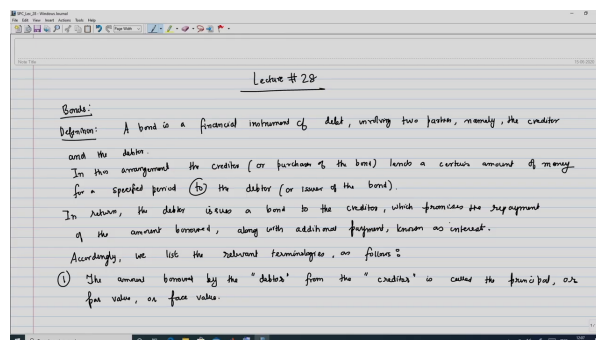 SPC_Lec_28 - Windows Journal
File Edit View Insert Actions Tools Help
Page Width
Note Title
Lecture # 28
Bonds:
Definition: A bond is a financial instrument of debt, involving two parties, namely, the creditor
and the debtor.
In this arrangement the creditor (or purchaser of the bond) lends a certain amount of money
for a specified period to the debtor (or issuer of the bond).
In return, the debtor issues a bond to the creditor, which promises the repayment
of the amount borrowed, along with additional payment, known as interest.
Accordingly, we list the relevant terminologies, as follows:
① The amount borrowed by the "debtor" from the "creditor" is called the principal, or
par value, or face value.